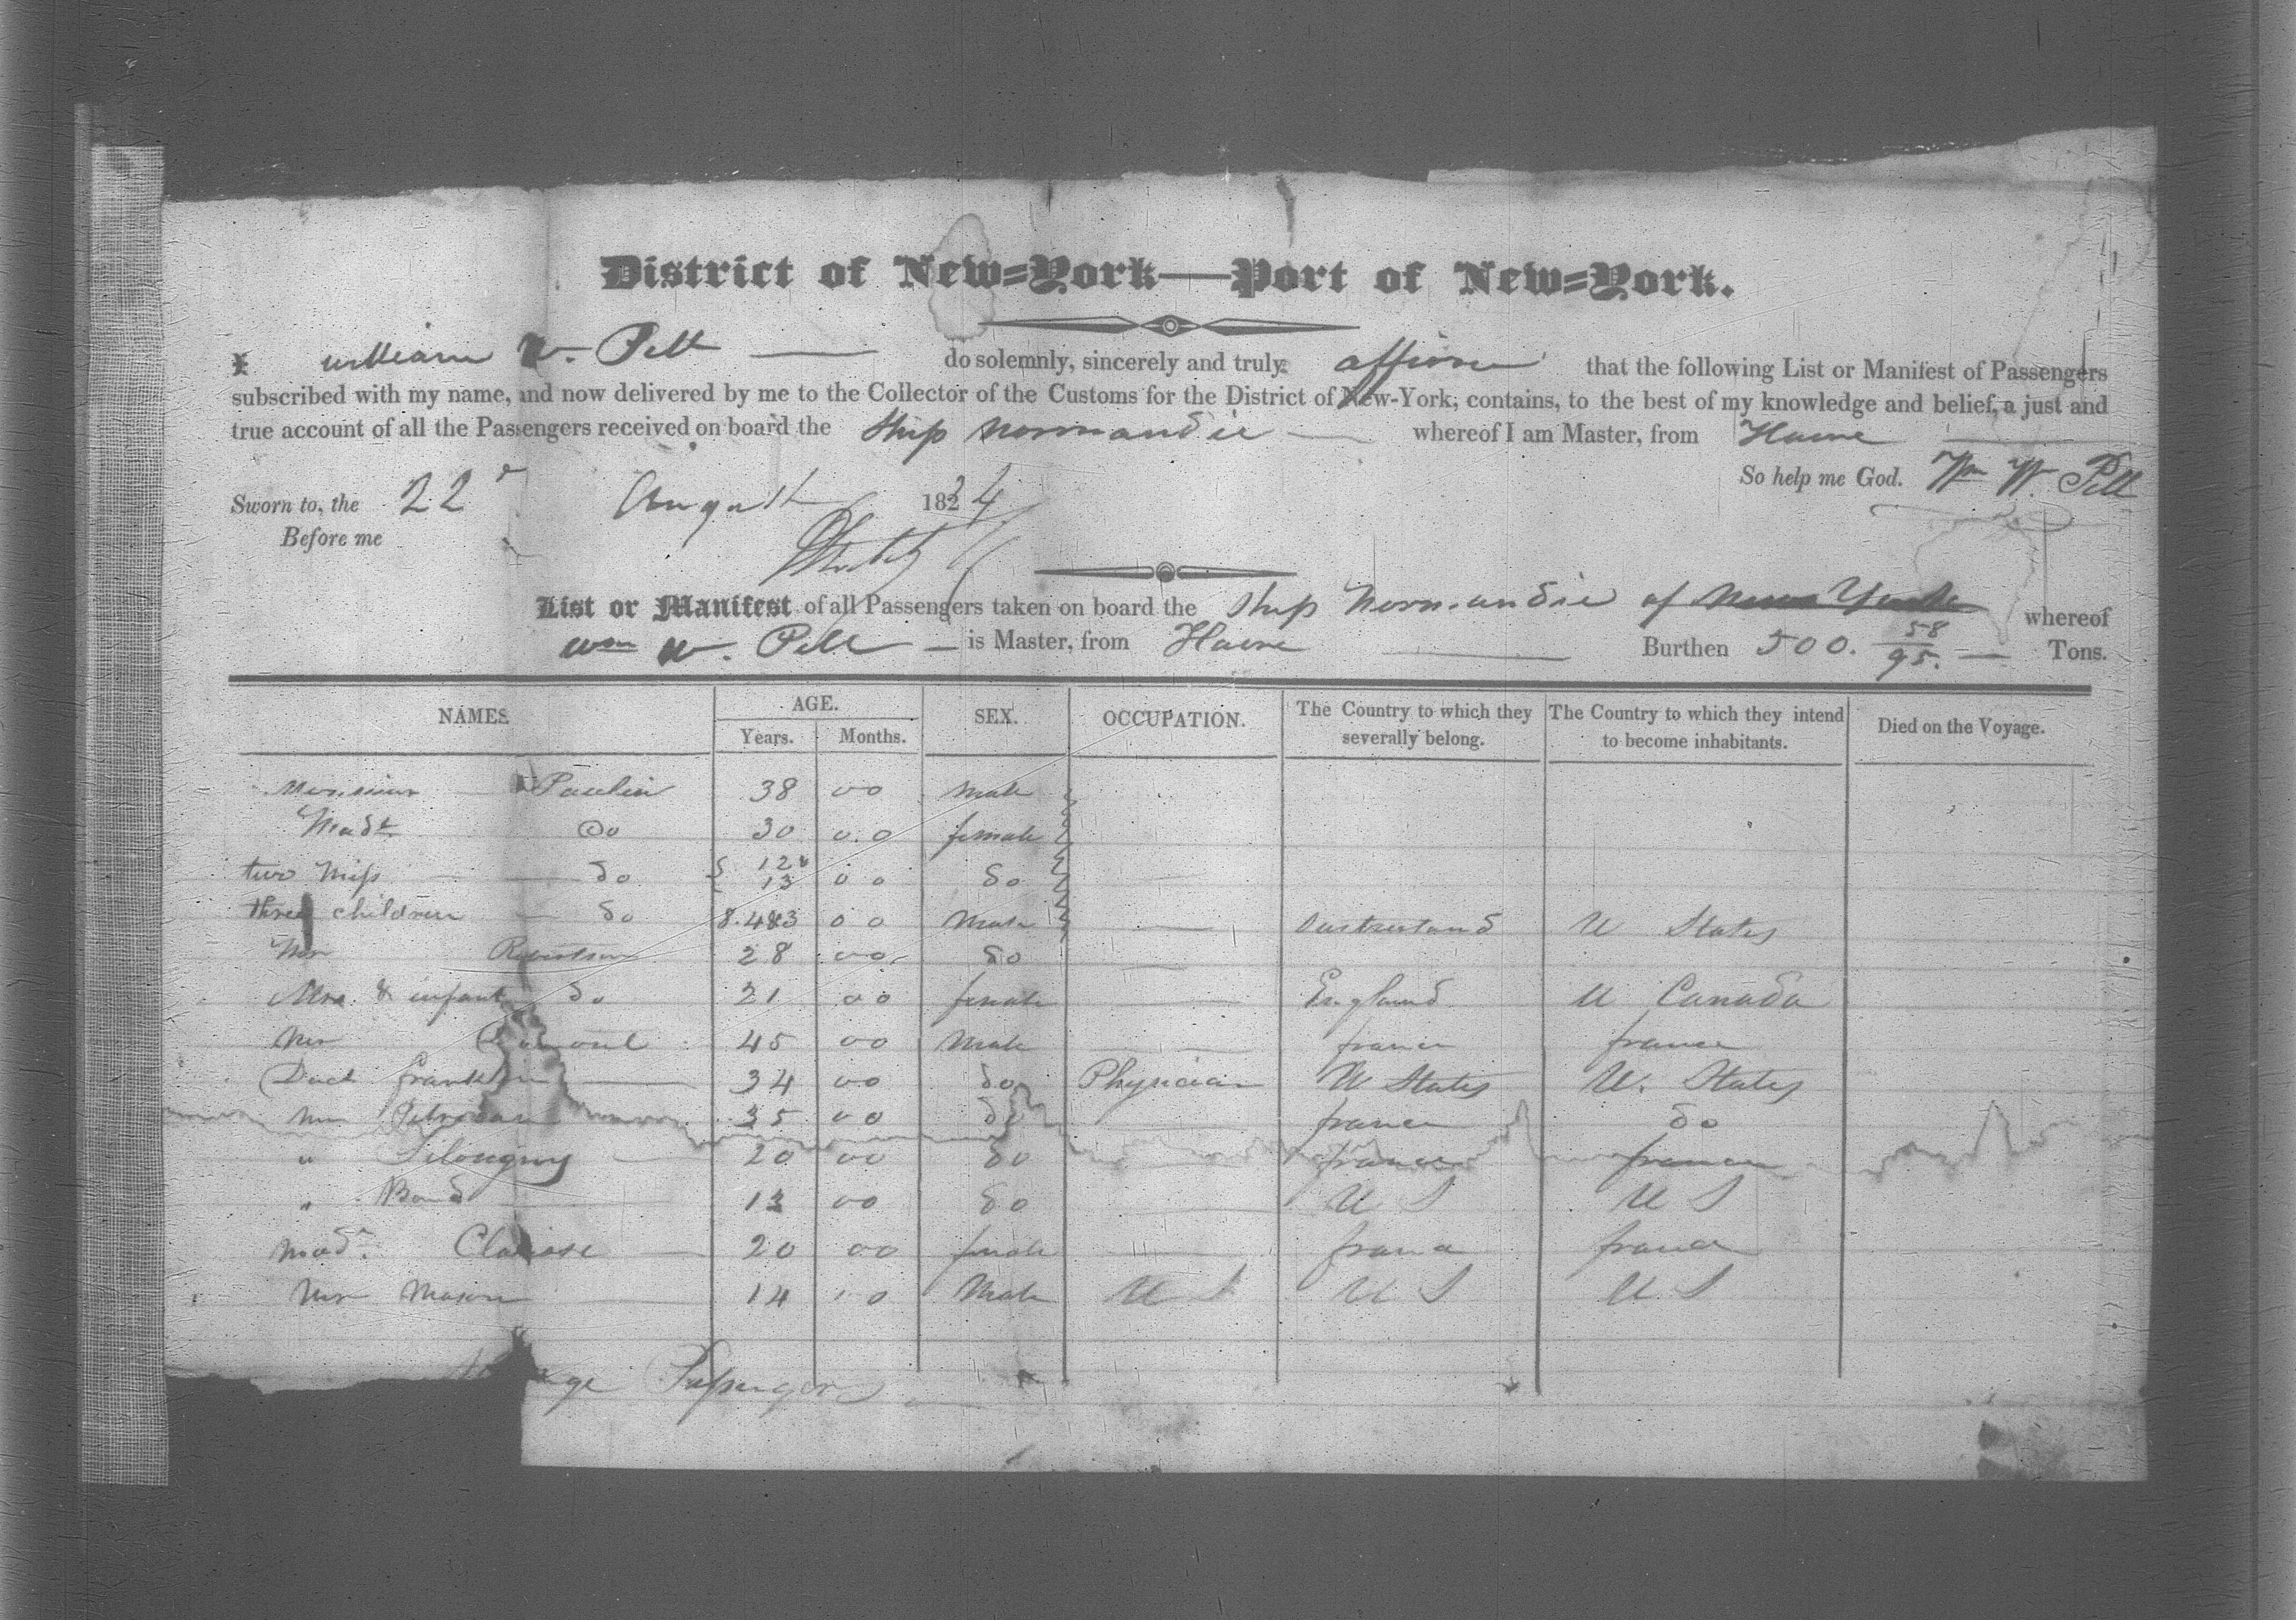 District of New=York—Port of New=York.
I William W. Pell do solemnly, sincerely and truly affirm that the following List or Manifest of Passengers
subscribed with my name, and now delivered by me to the Collector of the Customs for the District of New-York, contains, to the best of my knowledge and belief, a just and
true account of all the Passengers received on board the Ship Normandie whereof I am Master, from Havre
So help me God. Wm W. Pell
Sworn to, the 22d August 1824
Before me
List or Manifest of all Passengers taken on board the Ship Normandie of New York whereof
Wm W. Pell is Master, from Havre Burthen 500. 58/95. Tons.
NAMES. AGE. SEX. OCCUPATION. The Country to which they severally belong. The Country to which they intend to become inhabitants. Died on the Voyage.
Years. Months.
Monsieur Paulin 38 00 Male
Made Do 30 0.0 female
two Miss do 12 & 13 0 0 do
three children do 8.4&3 0 0 Male U States
Mr Robertson 28 00 do
Mrs. & infant do 21 00 female England U Canada
Mr 45 00 Male france france
Doct franklin 34 00 do Physician U States U. States
Mr 35 00 do france do
" 20 00 do france france
" Band 13 00 do U S U S
Mad. Clarisse 20 00 female france france
Mr Mason 14 10 Male U S U S U S
Passengers